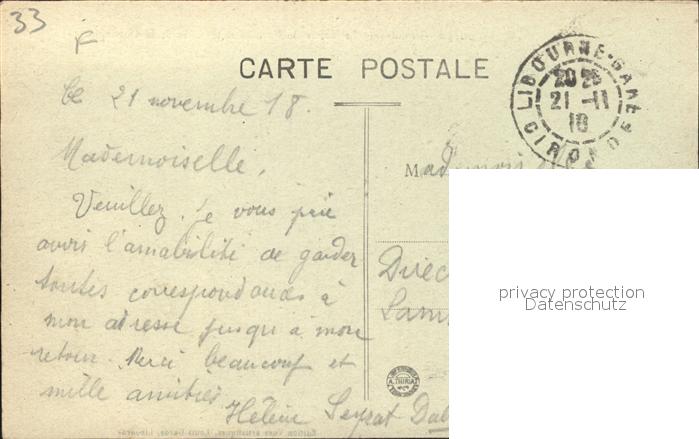 33
F
CARTE POSTALE
LIBOURNE-GARE
20 25
21 - 11
18
GIRONDE
Le 21 novembre 18.
Mademoiselle,
Veuillez, je vous prie
avoir l'amabilité de garder
toutes correspondances à
mon adresse jusqu'à mon
retour. Merci beaucoup et
mille amitiés
Hélène
Direc
privacy protection
Datenschutz